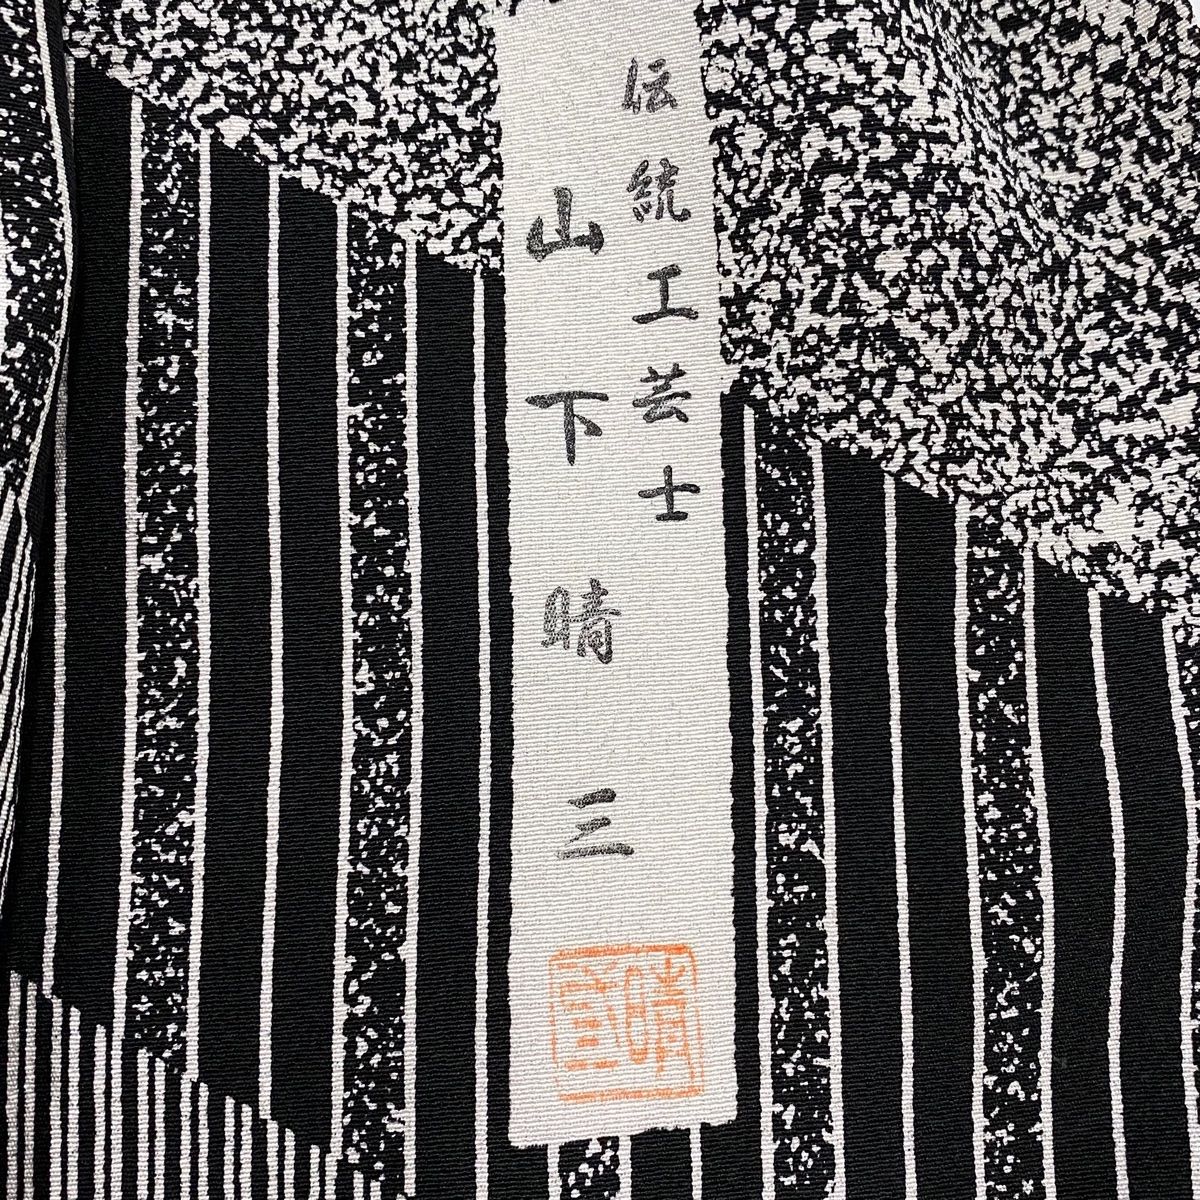 伝統工芸士
山下晴三